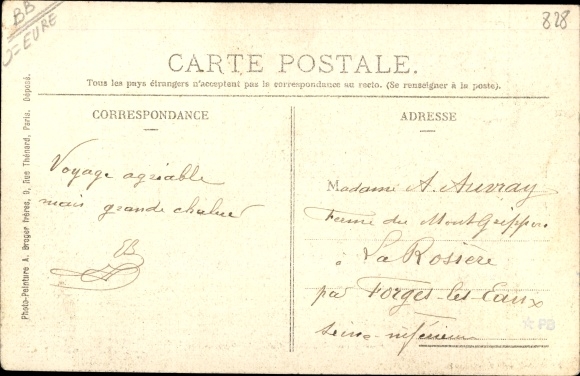 BB
J=EURE
828
CARTE POSTALE.
Tous les pays étrangers n'acceptent pas la correspondance au recto. (Se renseigner à la poste).
CORRESPONDANCE
ADRESSE
Voyage agréable
mais grande chaleur
EB
Madame A. Auvray
Ferme du Mont Grippon
à La Rosière
par Forges-les-Eaux
Seine-inférieure
Photo-Peinture A. Breger frères, 9, Rue Thénard, Paris. Déposé.
PB